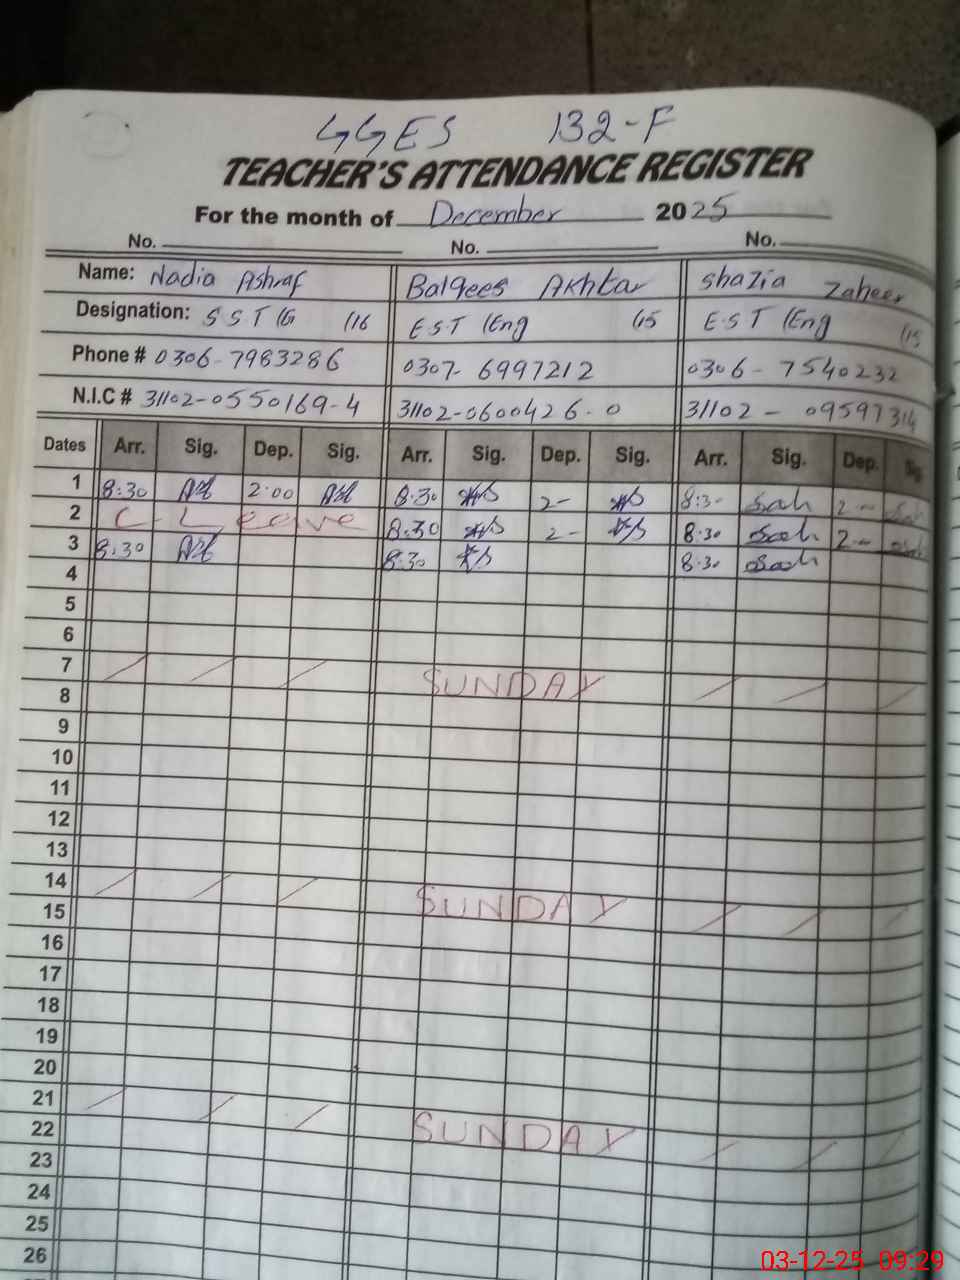 GGES 132-F
TEACHER'S ATTENDANCE REGISTER
For the month of December 2025
No. No. No.
Name: Nadia Ashraf Balqees Akhtar Shazia Zaheer
Designation: SST/G /16 E.S.T (Eng /15 E.S.T (Eng /15
Phone # 0306-7983286 0307-6997212 0306-7540232
N.I.C # 31102-0550169-4 31102-0600426-0 31102-0959731
Dates Arr. Sig. Dep. Sig. Arr. Sig. Dep. Sig. Arr. Sig. Dep. Sig.
1 8:30 2:00 8:30 2- 8:3- 2--
2 C-Leave 8:30 2- 8:30 2--
3 8:30 8:30 8:30
4
5
6
7 SUNDAY
8
9
10
11
12
13
14 SUNDAY
15
16
17
18
19
20
21 SUNDAY
22
23
24
25
26
03-12-25 09:29